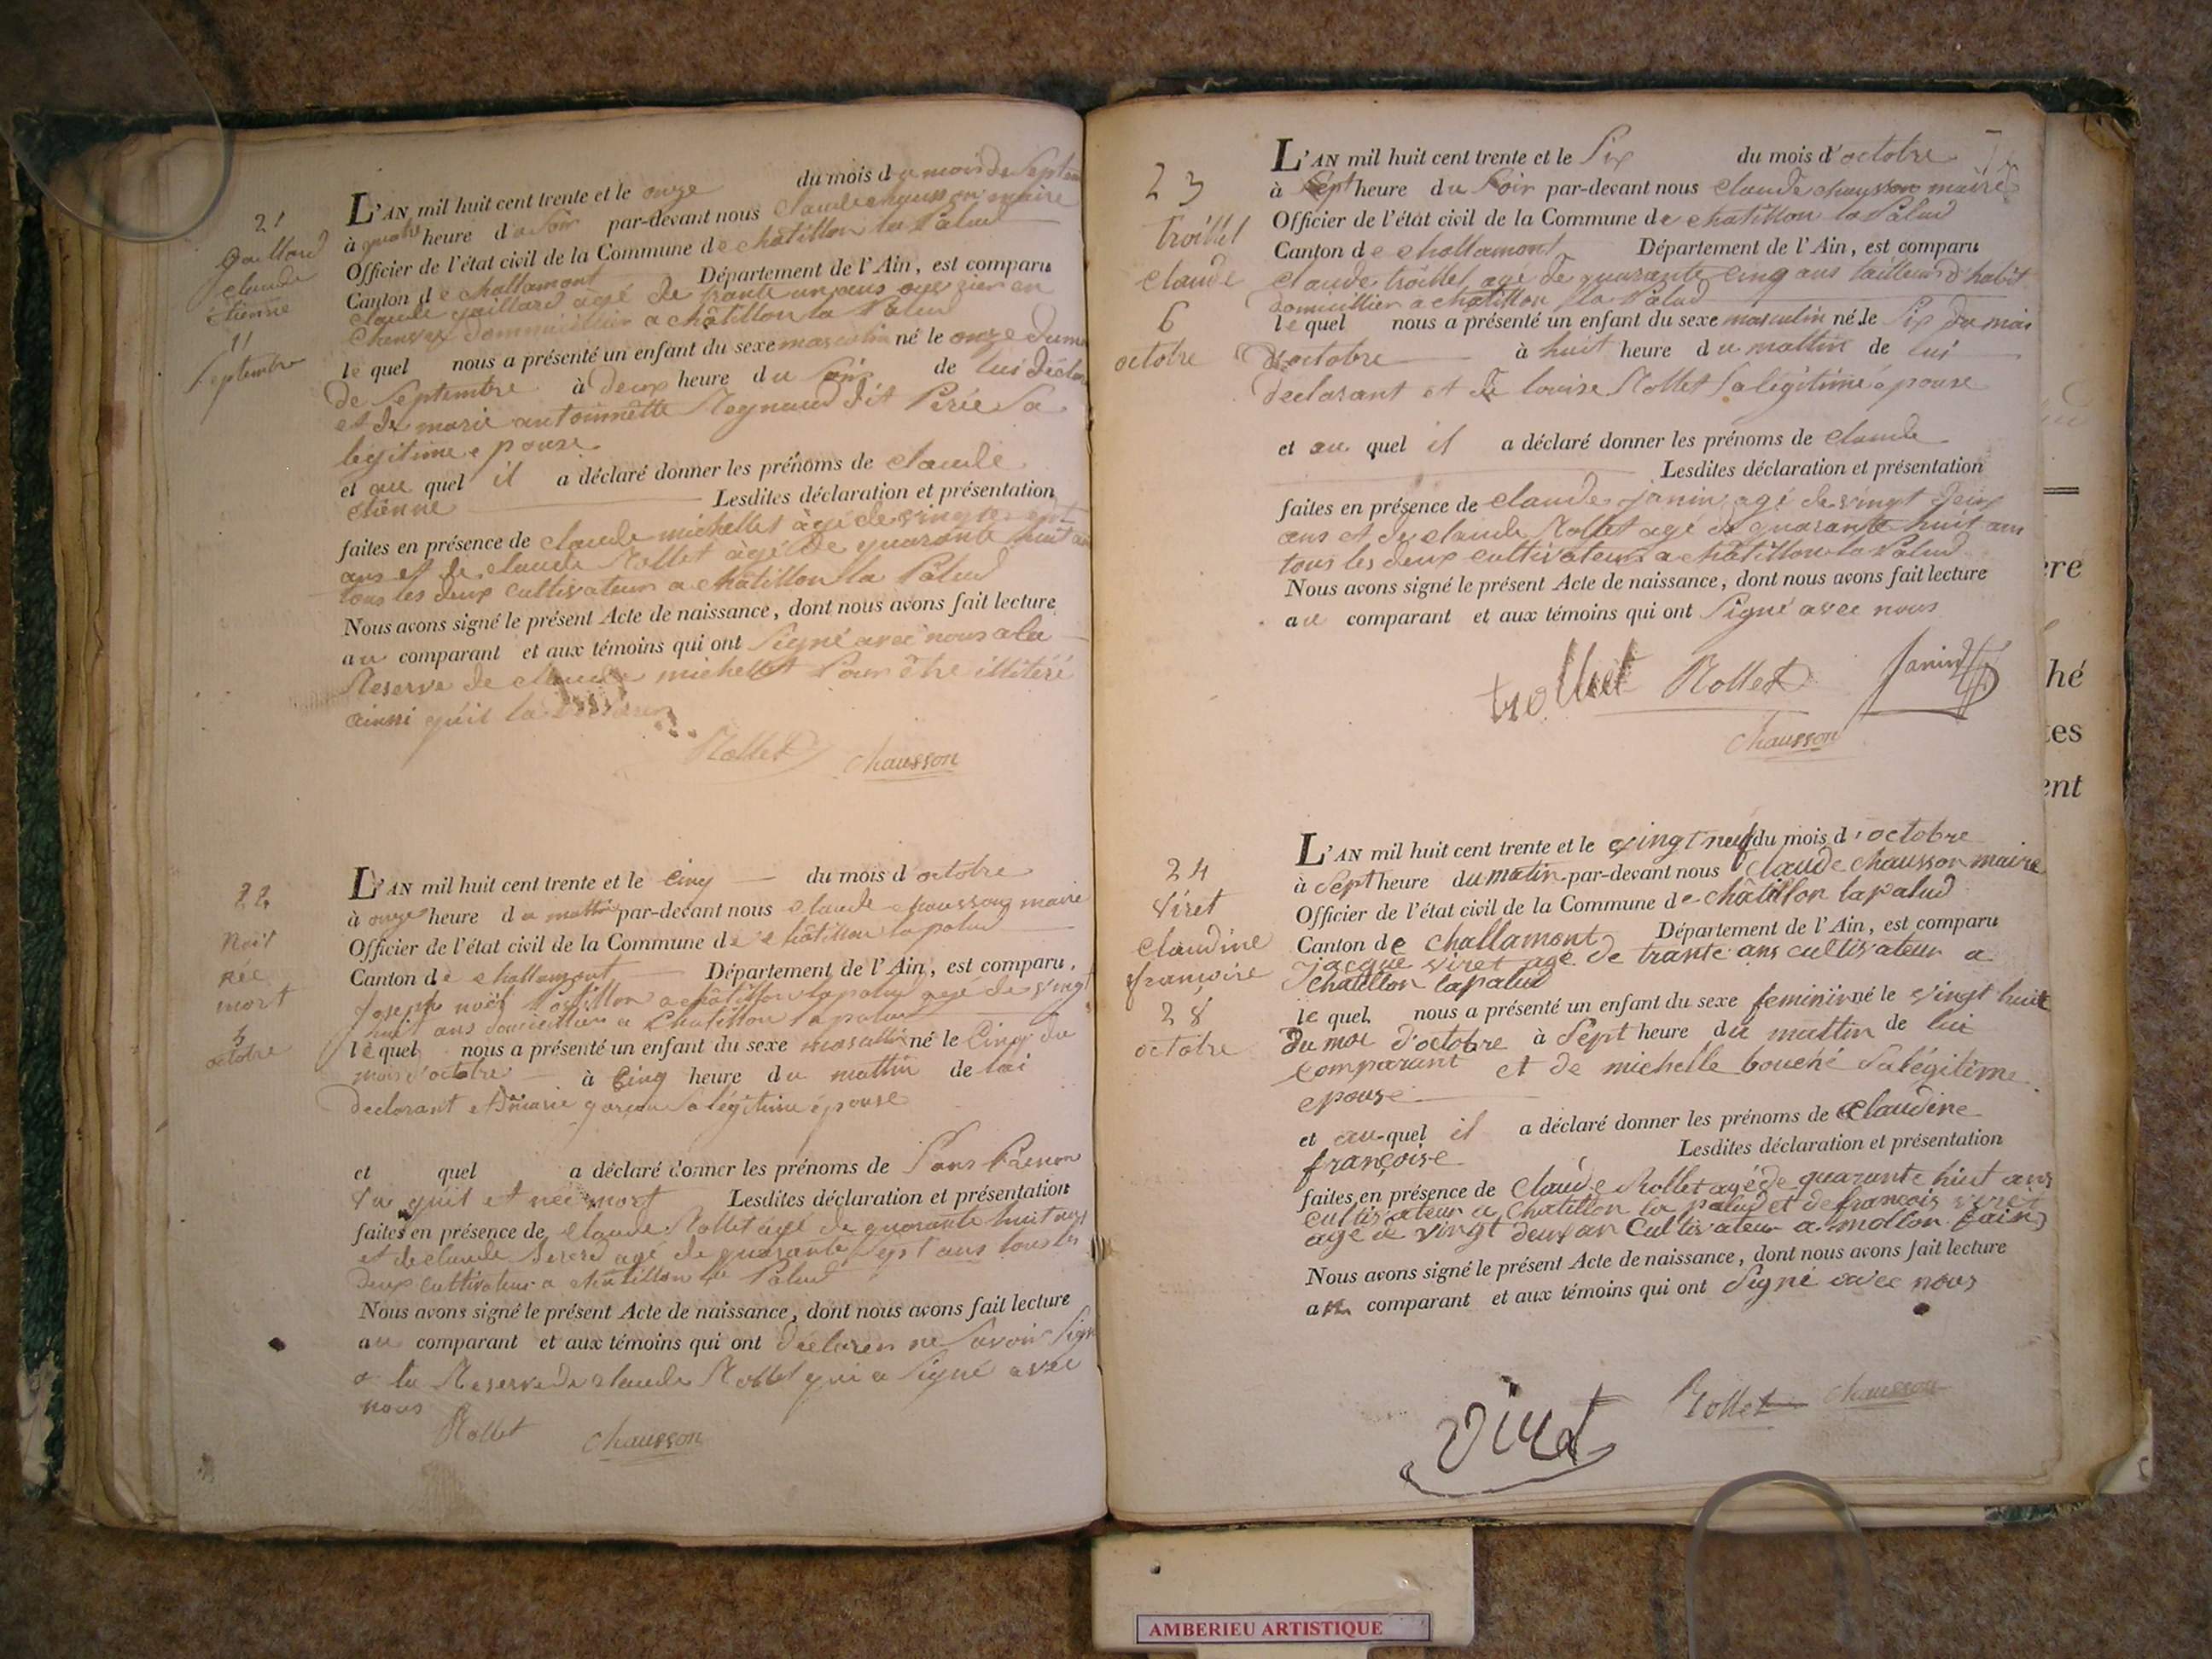 21
Gaillard
claude
étienne
11
Septembre
L'AN mil huit cent trente et le onze du mois du mois de Septem
à quatre heure du Soir par-devant nous claude chausson maire
Officier de l'état civil de la Commune de châtillon la Palud
Canton de challamont Département de l'Ain, est comparu
claude gaillard agé de trante un ans
domicillier a châtillon la Palud
le quel nous a présenté un enfant du sexe masculin né le onze du
de Septembre à deux heure du Soir de lui
et de marie antoinnette Regnaud dit Périe Sa
légitime epouse
et au quel il a déclaré donner les prénoms de claude
étienne Lesdites déclaration et présentation
faites en présence de claude michellet àgé de vingt
ans et de claude Rollet àgé de quarante huit
tous les deux cultivateur a châtillon la Palud
Nous avons signé le présent Acte de naissance, dont nous avons fait lecture
au comparant et aux témoins qui ont Signé avec nous a la
Reserve de claude michellet Pour être illitéré
ainsi qu'il la
Rollet chausson
22
Noit
née
mort
5
octobre
L'AN mil huit cent trente et le cinq du mois d'octobre
à onze heure du mattin par-devant nous claude chausson maire
Officier de l'état civil de la Commune de châtillon la palud
Canton de challamont Département de l'Ain, est comparu
Joseph noët a châtillon la palud agé de vingt
huit ans domicillier a Chatillon la palud
le quel nous a présenté un enfant du sexe masculin né le Cinq du
mois d'octobre à Cinq heure du mattin de lui
declarant et marie garcon Sa légitime épouse
et quel a déclaré donner les prénoms de Sans Prenom
Vu qu'il et née mort Lesdites déclaration et présentation
faites en présence de claude Rollet agé de quarante huit ans
et de claude agé de quarante Sept ans tous les
deux cultivateur a châtillon la Palud
Nous avons signé le présent Acte de naissance, dont nous avons fait lecture
au comparant et aux témoins qui ont déclarer ne Savoir Sign
a la Reserve de claude Rollet qui a Signé avec
nous
Rollet chausson
23
troillet
claude
6
octobre
L'AN mil huit cent trente et le Six du mois d'octobre
à Sept heure du Soir par-devant nous claude chausson maire
Officier de l'état civil de la Commune de châtillon la Palud
Canton de challamont Département de l'Ain, est comparu
claude troillet agé de quarante cinq ans tailleur d'habit
domicillier a châtillon la Palud
le quel nous a présenté un enfant du sexe masculin né le Six du mois
d'octobre à huit heure du mattin de lui
declarant et de louise Rollet Sa légitime épouse
et au quel il a déclaré donner les prénoms de claude
Lesdites déclaration et présentation
faites en présence de claude janin agé de vingt deux
ans et de claude Rollet agé de quarante huit ans
tous les deux cultivateur a châtillon la Palud
Nous avons signé le présent Acte de naissance, dont nous avons fait lecture
au comparant et aux témoins qui ont Signé avec nous
trolliet Rollet Janin
Chausson
24
Viret
claudine
françoise
28
octobre
L'AN mil huit cent trente et le vingt neuf du mois d'octobre
à Sept heure du matin par-devant nous Claude chausson maire
Officier de l'état civil de la Commune de châtillon lapalud
Canton de challamont Département de l'Ain, est comparu
jacque viret agé de trante ans cultivateur a
chatillon lapalud
le quel nous a présenté un enfant du sexe feminin né le vingt huit
du moi d'octobre à Sept heure du mattin de lui
comparant et de michelle bouché Salégitime
epouse
et au quel il a déclaré donner les prénoms de Claudine
françoise Lesdites déclaration et présentation
faites en présence de Claude Rollet agé de quarante huit ans
cultivateur a Chatillon la palud et de françois viret
agé de vingt deux an Cultivateur a mollon (ain)
Nous avons signé le présent Acte de naissance, dont nous avons fait lecture
au comparant et aux témoins qui ont Signé avec nous
Viret Rollet chausson
ère
hé
tes
ent
AMBERIEU ARTISTIQUE